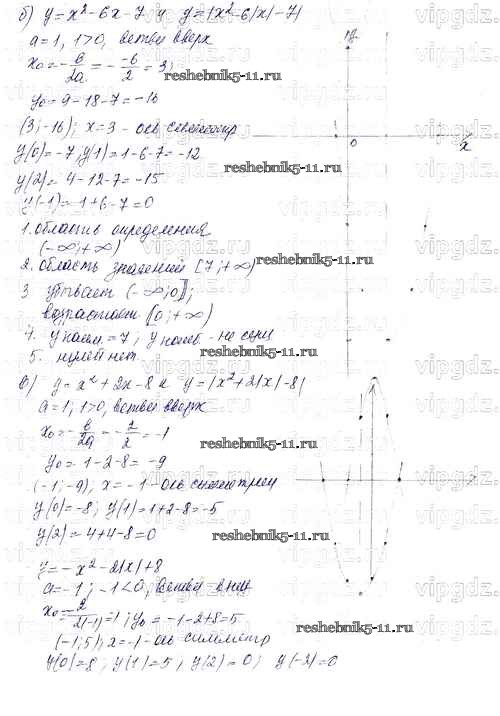 б) y = x² - 6x - 7 и y = |x² - 6|x| - 7|
a = 1, 1>0, ветви вверх
x₀ = -в/2a = - -6/2 = 3;
y₀ = 9 - 18 - 7 = -16
(3; -16); x = 3 - ось симметр
y(0) = -7 y(1) = 1 - 6 - 7 = -12
y(2) = 4 - 12 - 7 = -15
y(-1) = 1 + 6 - 7 = 0
1. область определения
(-∞; +∞)
2. область значений [7; +∞)
3 убывает (-∞; 0];
возрастает [0; +∞)
4. y наим. = 7; y наиб. - не сущ
5. нулей нет.
в) y = x² + 2x - 8 и y = |x² + 2|x| - 8|
a = 1; 1>0, ветви вверх
x₀ = -в/2a = -2/2 = -1
y₀ = 1 - 2 - 8 = -9
(-1; -9), x = -1 - ось симметрии
y(0) = -8; y(1) = 1 + 2 - 8 = -5
y(2) = 4 + 4 - 8 = 0
y = -x² - 2|x| + 8
a = -1; -1<0, ветви вниз
x₀ = 2/2(-1) = 1; y₀ = -1 - 2 + 8 = 5
(-1; 5), x = -1 - ось симметр
y(0) = 8; y(1) = 5; y(2) = 0; y(-2) = 0
y
0
x
reshebnik5-11.ru
reshebnik5-11.ru
reshebnik5-11.ru
reshebnik5-11.ru
reshebnik5-11.ru
reshebnik5-11.ru
reshebnik5-11.ru
vipgdz.ru